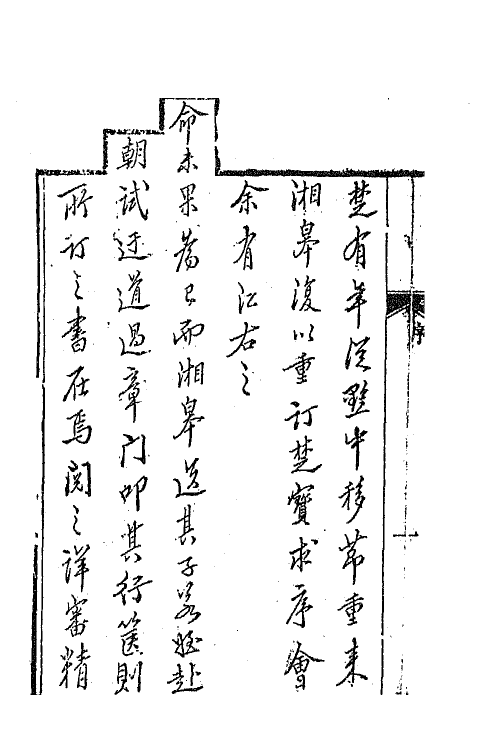 序
楚有年從黔中移節重來
湘皋復以重訂楚寶求序會
余有江右之
命未果為已而湘皋送其子若姪赴
朝試迂道過章門叩其行篋則
所訂之書在焉閱之詳審精